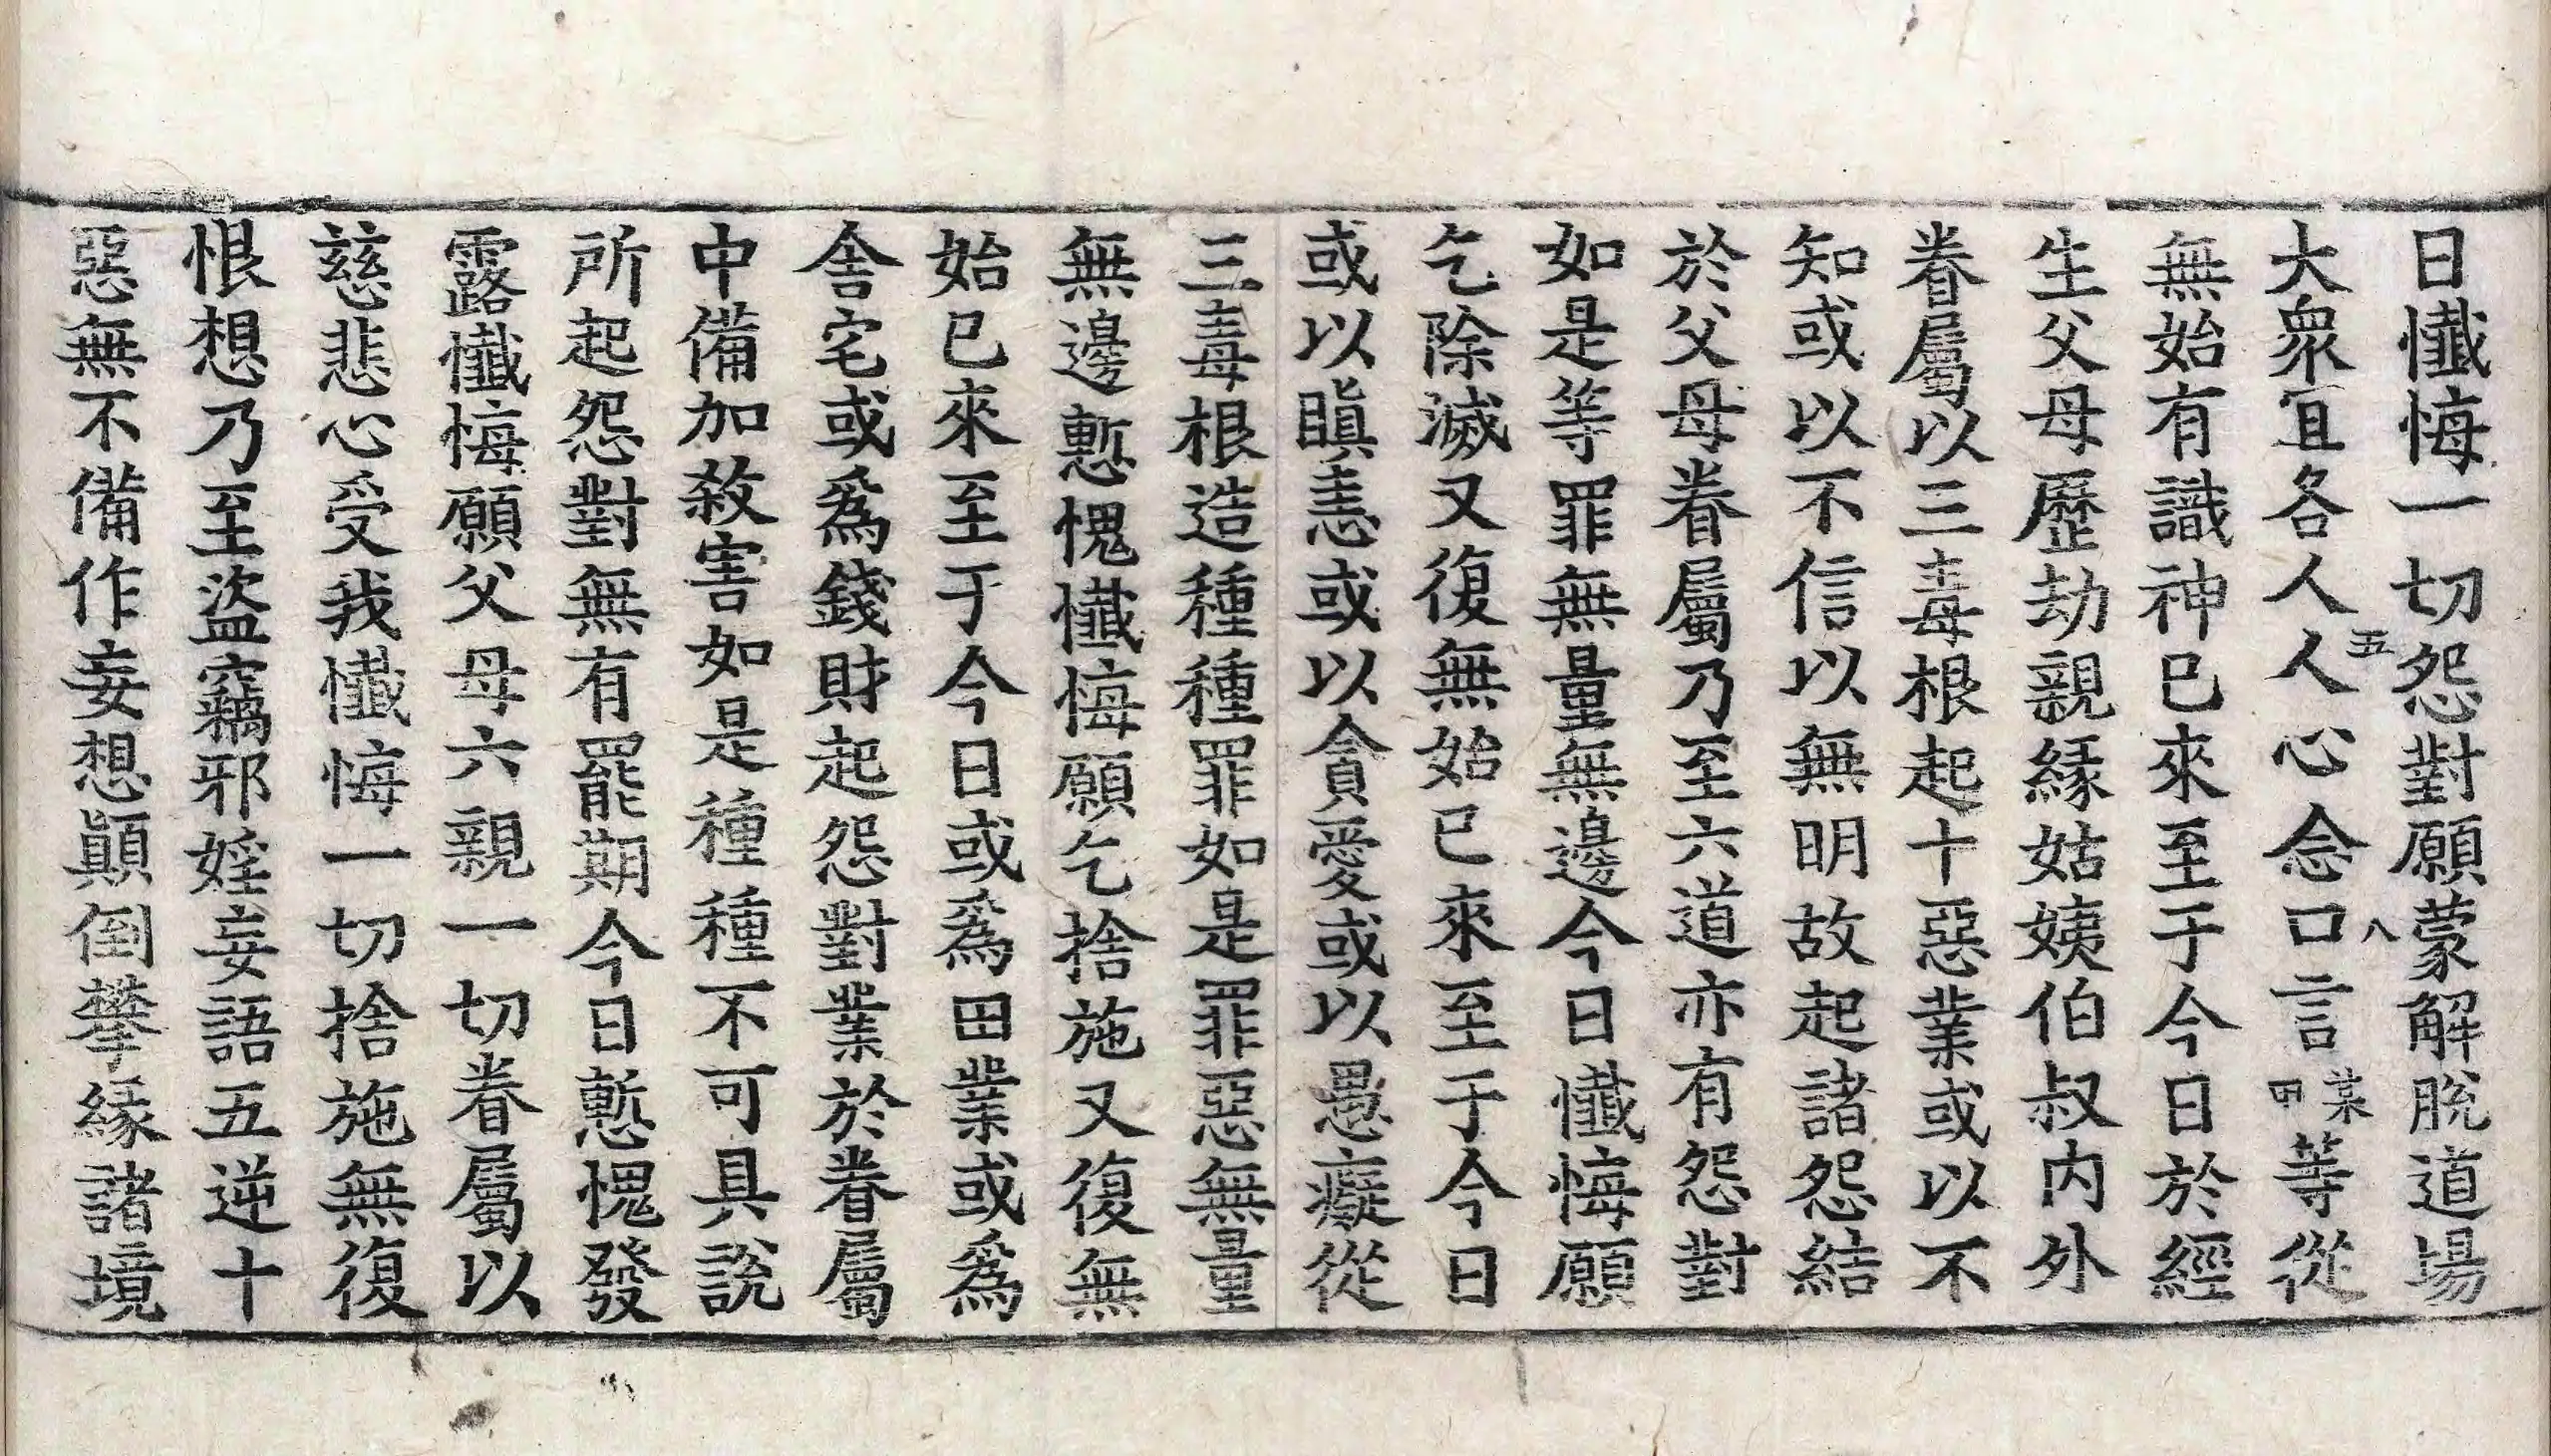 日懺悔一切怨對願蒙解脫道場
大衆宜各人人心念口言某甲等從
五 八
無始有識神已來至于今日於經
生父母歷劫親緣姑姨伯叔内外
眷屬以三毒根起十惡業或以不
知或以不信以無明故起諸怨結
於父母眷屬乃至六道亦有怨對
如是等罪無量無邊今日懺悔願
乞除滅又復無始已來至于今日
或以瞋恚或以貪愛或以愚癡從
三毒根造種種罪如是罪惡無量
無邊慙愧懺悔願乞捨施又復無
始已來至于今日或爲田業或爲
舍宅或爲錢財起怨對業於眷屬
中備加殺害如是種種不可具說
所起怨對無有罷期今日慙愧發
露懺悔願父母六親一切眷屬以
慈悲心受我懺悔一切捨施無復
恨想乃至盜竊邪婬妄語五逆十
惡無不備作妄想顚倒攀緣諸境